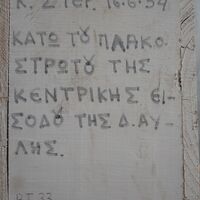 Κ. ΣΤΕΓ. 16.6.54
ΚΑΤΩ ΤΟΥ ΠΛΑΚΟ
ΣΤΡΩΤΟΥ ΤΗΣ
ΚΕΝΤΡΙΚΗΣ ΕΙ-
ΣΟΔΟΥ ΤΗΣ Δ.ΑΥ-
ΛΗΣ.